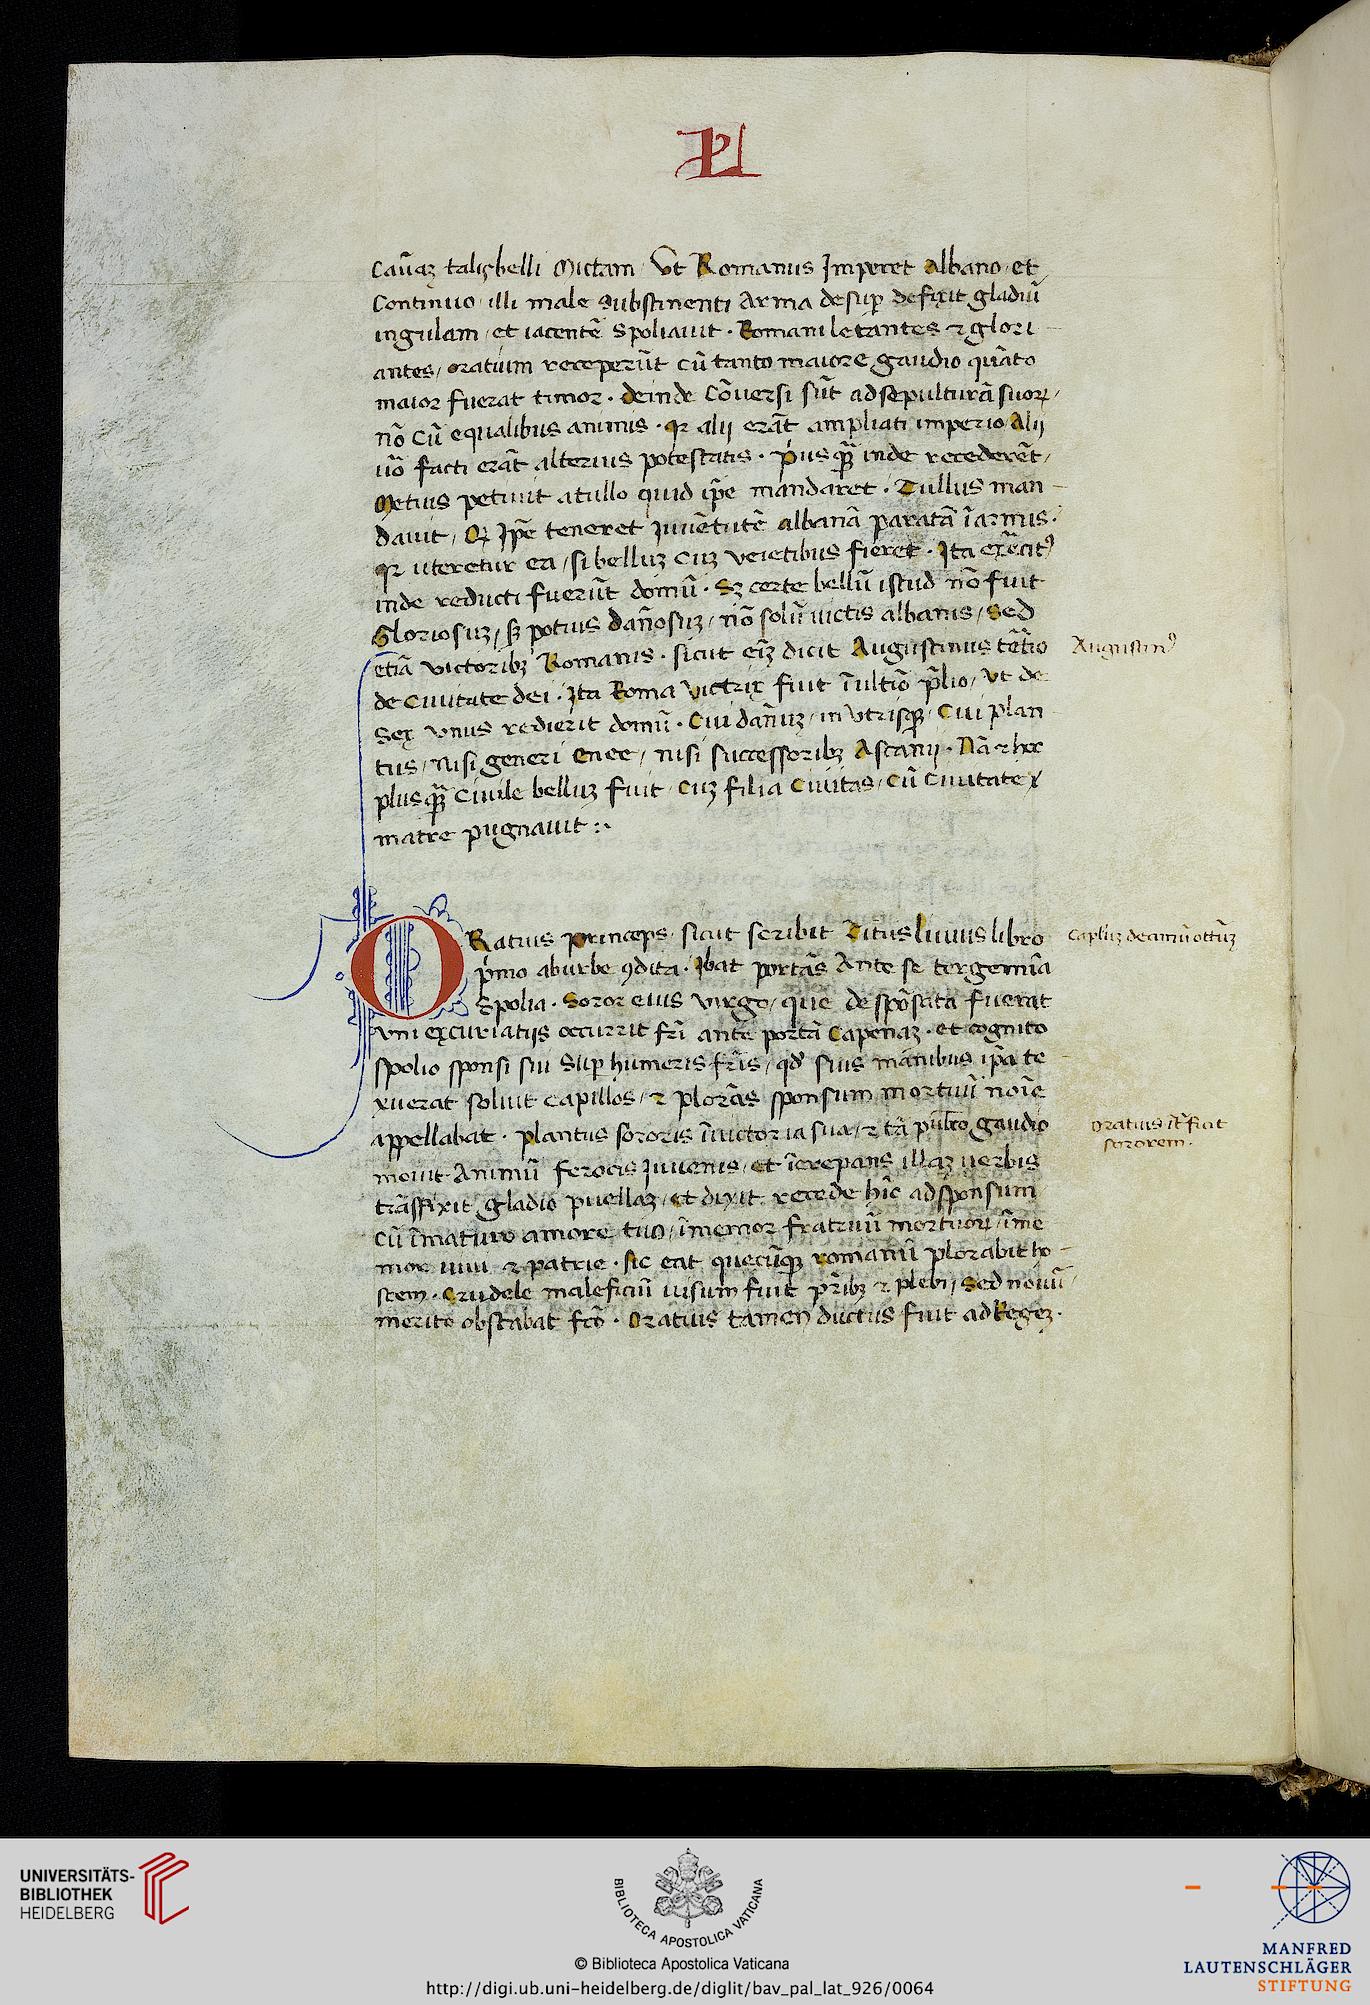 PL
Cauaʒ talis belli Mictam / Vt Romanus Imperet Albano / et
Continuo / illi male substinenti Arma desuꝑ defixit gladiū
ingulam / et iacentē Spoliauit · Romani letantes ⁊ glori
antes / oratium receperūt cū tanto maiore gaudio quāto
maior fuerat timor · deinde Cōuersi sūt ad sepulturā suoꝝ /
nō Cū equalibus animis · qꝛ alij erāt ampliati imperio / Alij
uō facti erāt alterius potestatis · pͥus qꝫ̄ inde recederēt /
Metius petiuit a tullo quid ip̄e mandaret · Tullus man
dauit / Qꝫ Ip̄e teneret Juuētutē albanā paratā ī armis ·
qꝛ uteretur ea / si belluʒ Cuʒ veietibus fieret · Ita exˀcitꝰ
inde reducti fuerūt domū · Sʒ certe bellū istud nō fuit
Gloriosuʒ / sʒ potius dān̄osuʒ / nō solū uictis albanis / Sed
etiā victoribʒ Romanis · sicut eīʒ dicit Augustinus tˀtio
de Ciuitate dei · Ita Roma Victrix fuit ī ultīo p̄lio / Vt de
Sex vnus redierit domū · Cui dān̄uʒ / in Vtrisqꝫ · Cui plan
tus / Nisi generi Enee / nisi Successoribʒ Ascanij · Nā ⁊ hoc
plus qꝫ̄ Ciuile belluʒ fuit / Cuʒ filia Ciuitas / Cū Ciuitate
matre pugnauit :·
ORatius princeps · sicut scribit Titus liuius libro
pͥmo ab urbe ꝯdita · Ibat portās Ante se tergemīa
Spolia · Soror eius virgo / que despōsata fuerat
vni ex curiatijs occurrit fr̄i ante portā Capenaʒ · et cognito
spolio sponsi sui Suꝑ humeris fr̄is / qd̓ suis manibus ip̄a te
xuerat soluit Capillos / ⁊ plorās sponsum mortuū noīe
appellabat · plantus sororis ī uictoria sua / ⁊ tā pub̄co gaudio
mouit Animū ferocis Juuenis / et īcrepans illaʒ uerbis
trāsfixit gladio puellaʒ / et dixit recede hīc ad sponsum
Cū īmaturo amore tuo / īmemor fratruū mortuoꝝ / īme
mor uiui ⁊ patrie · sic eat quecūqꝫ romanū plorabit ho
stem · Crudele maleficiū uisum fuit pr̄ibʒ ⁊ plebi / Sed nouū /
merito obstabat fc̄o · Oratius tamen ductus fuit ad Regeʒ ·
Augustinꝰ
Caplūʒ decimū ottūʒ
Oratius it̄ficit
sororem ·
UNIVERSITÄTS-
BIBLIOTHEK
HEIDELBERG
BIBLIOTECA APOSTOLICA VATICANA
© Biblioteca Apostolica Vaticana
http://digi.ub.uni-heidelberg.de/diglit/bav_pal_lat_926/0064
MANFRED
LAUTENSCHLÄGER
STIFTUNG